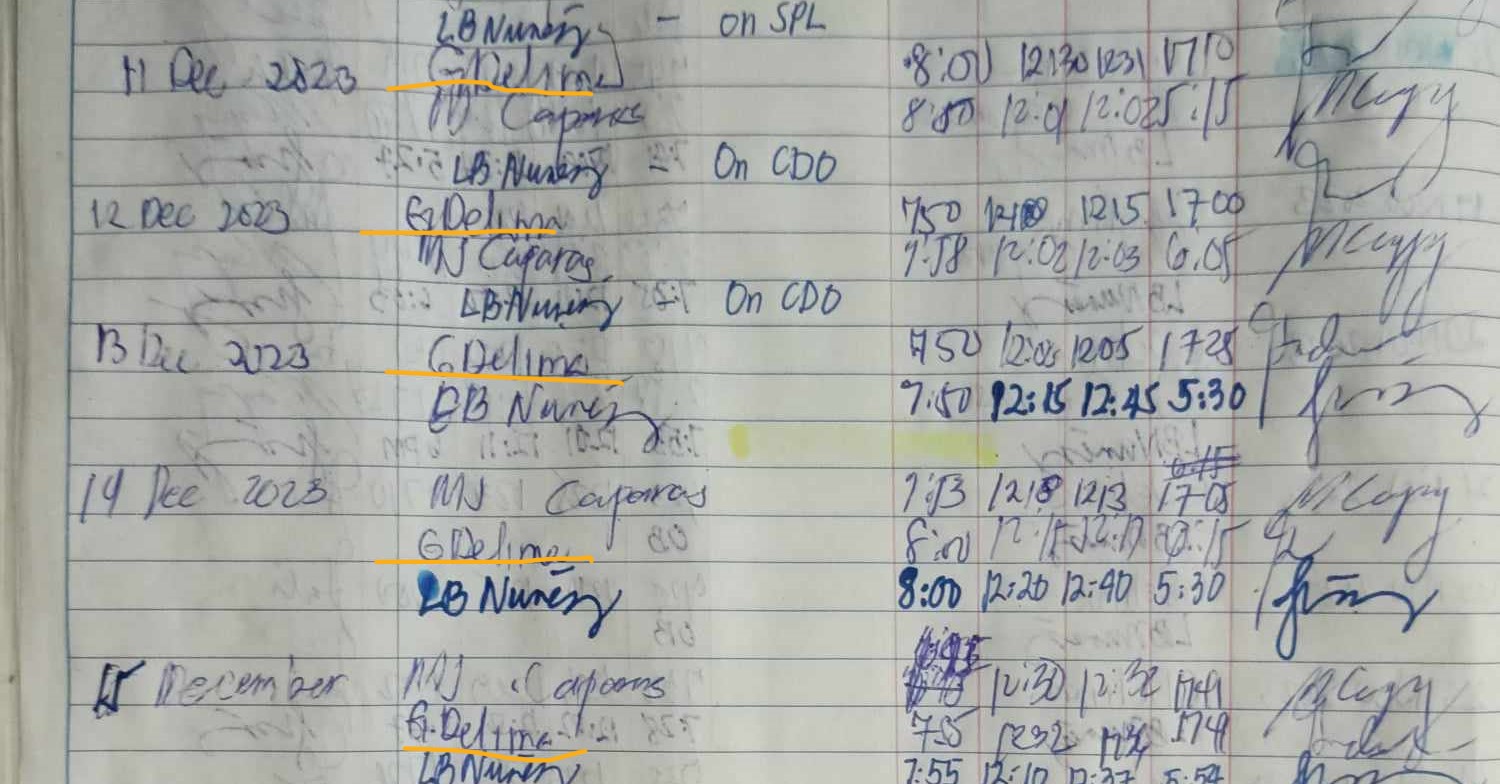 LB Nuñez - on SPL
11 Dec 2023 G Delima 8:00 12:30 1231 1710
MJ Caparas 8:00 12:01 12:02 5:15
LB Nuñez - On CDO
12 Dec 2023 G Delima 750 1215 1700
MJ Caparas 7:58 12:02 12:03 6:05
LB Nuñez On CDO
13 Dec 2023 G Delima 750 12:03 1205 1728
LB Nuñez 7:50 12:15 12:45 5:30
14 Dec 2023 MJ Caparas 7:53 1213 1705
G Delima 8:00
LB Nuñez 8:00 12:20 12:40 5:30
15 December MJ Caparas 12:30 12:32 1741
G. Delima 755 1232 1741
LB Nuñez 7:55 12:10 12:37 5:54